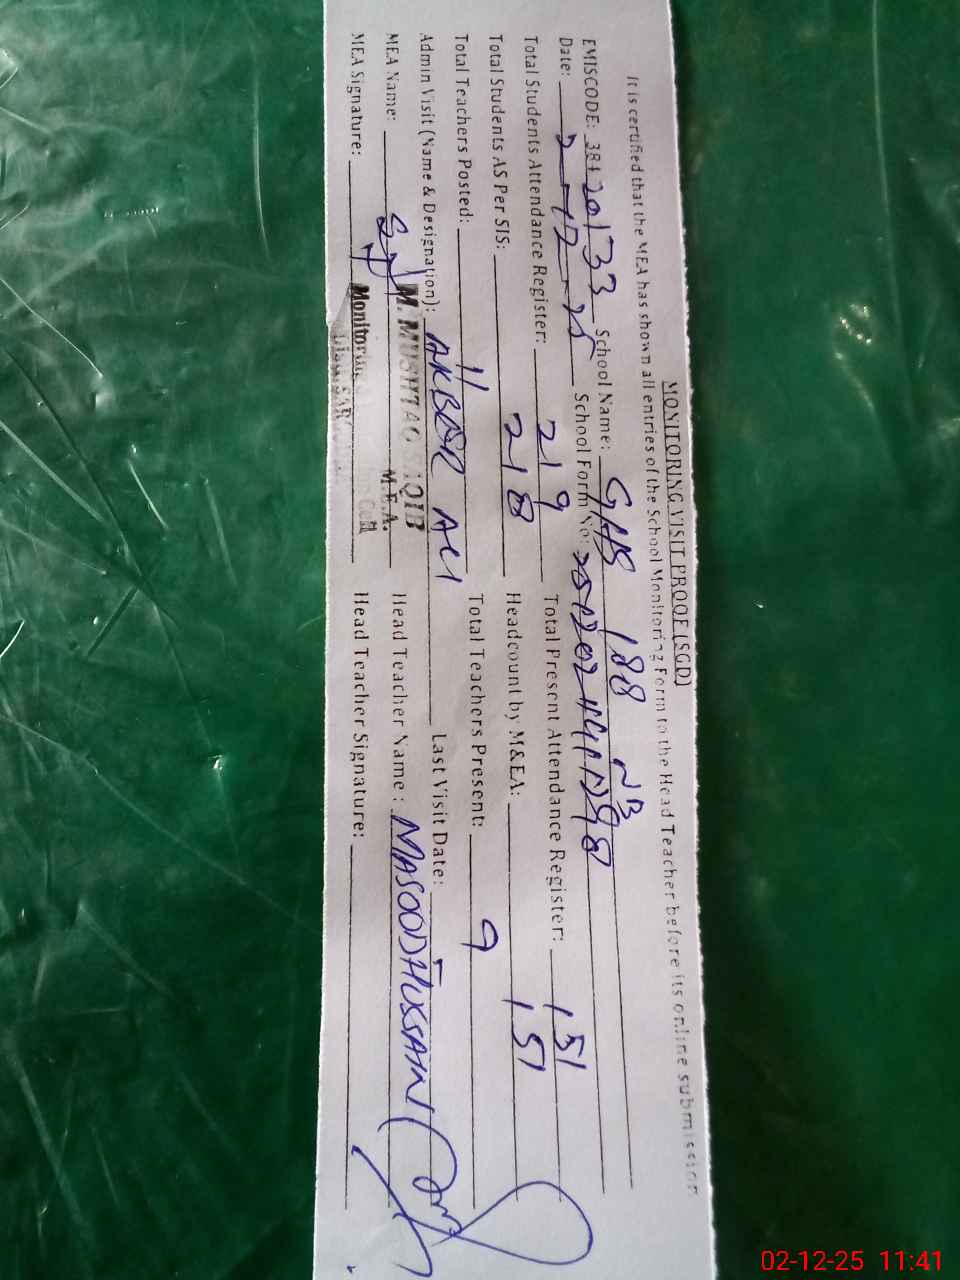 MONITORING VISIT PROOF (SGD)
It is certified that the MEA has shown all entries of the School Monitoring Form to the Head Teacher before its online submission
EMISCODE: 38420133 School Name: GHS 188 NB
Date: 2-12-25 School Form No:
Total Students Attendance Register: 219 Total Present Attendance Register: 151
Total Students AS Per SIS: 218 Headcount by M&EA: 151
Total Teachers Posted: 11 Total Teachers Present: 9
Admin Visit (Name & Designation): AKBAR ALI Last Visit Date:
MEA Name: M. MUSHTAQ Head Teacher Name: MASOOD HUSSAIN
M.E.A.
MEA Signature: Head Teacher Signature:
Monitoring Cell
02-12-25 11:41